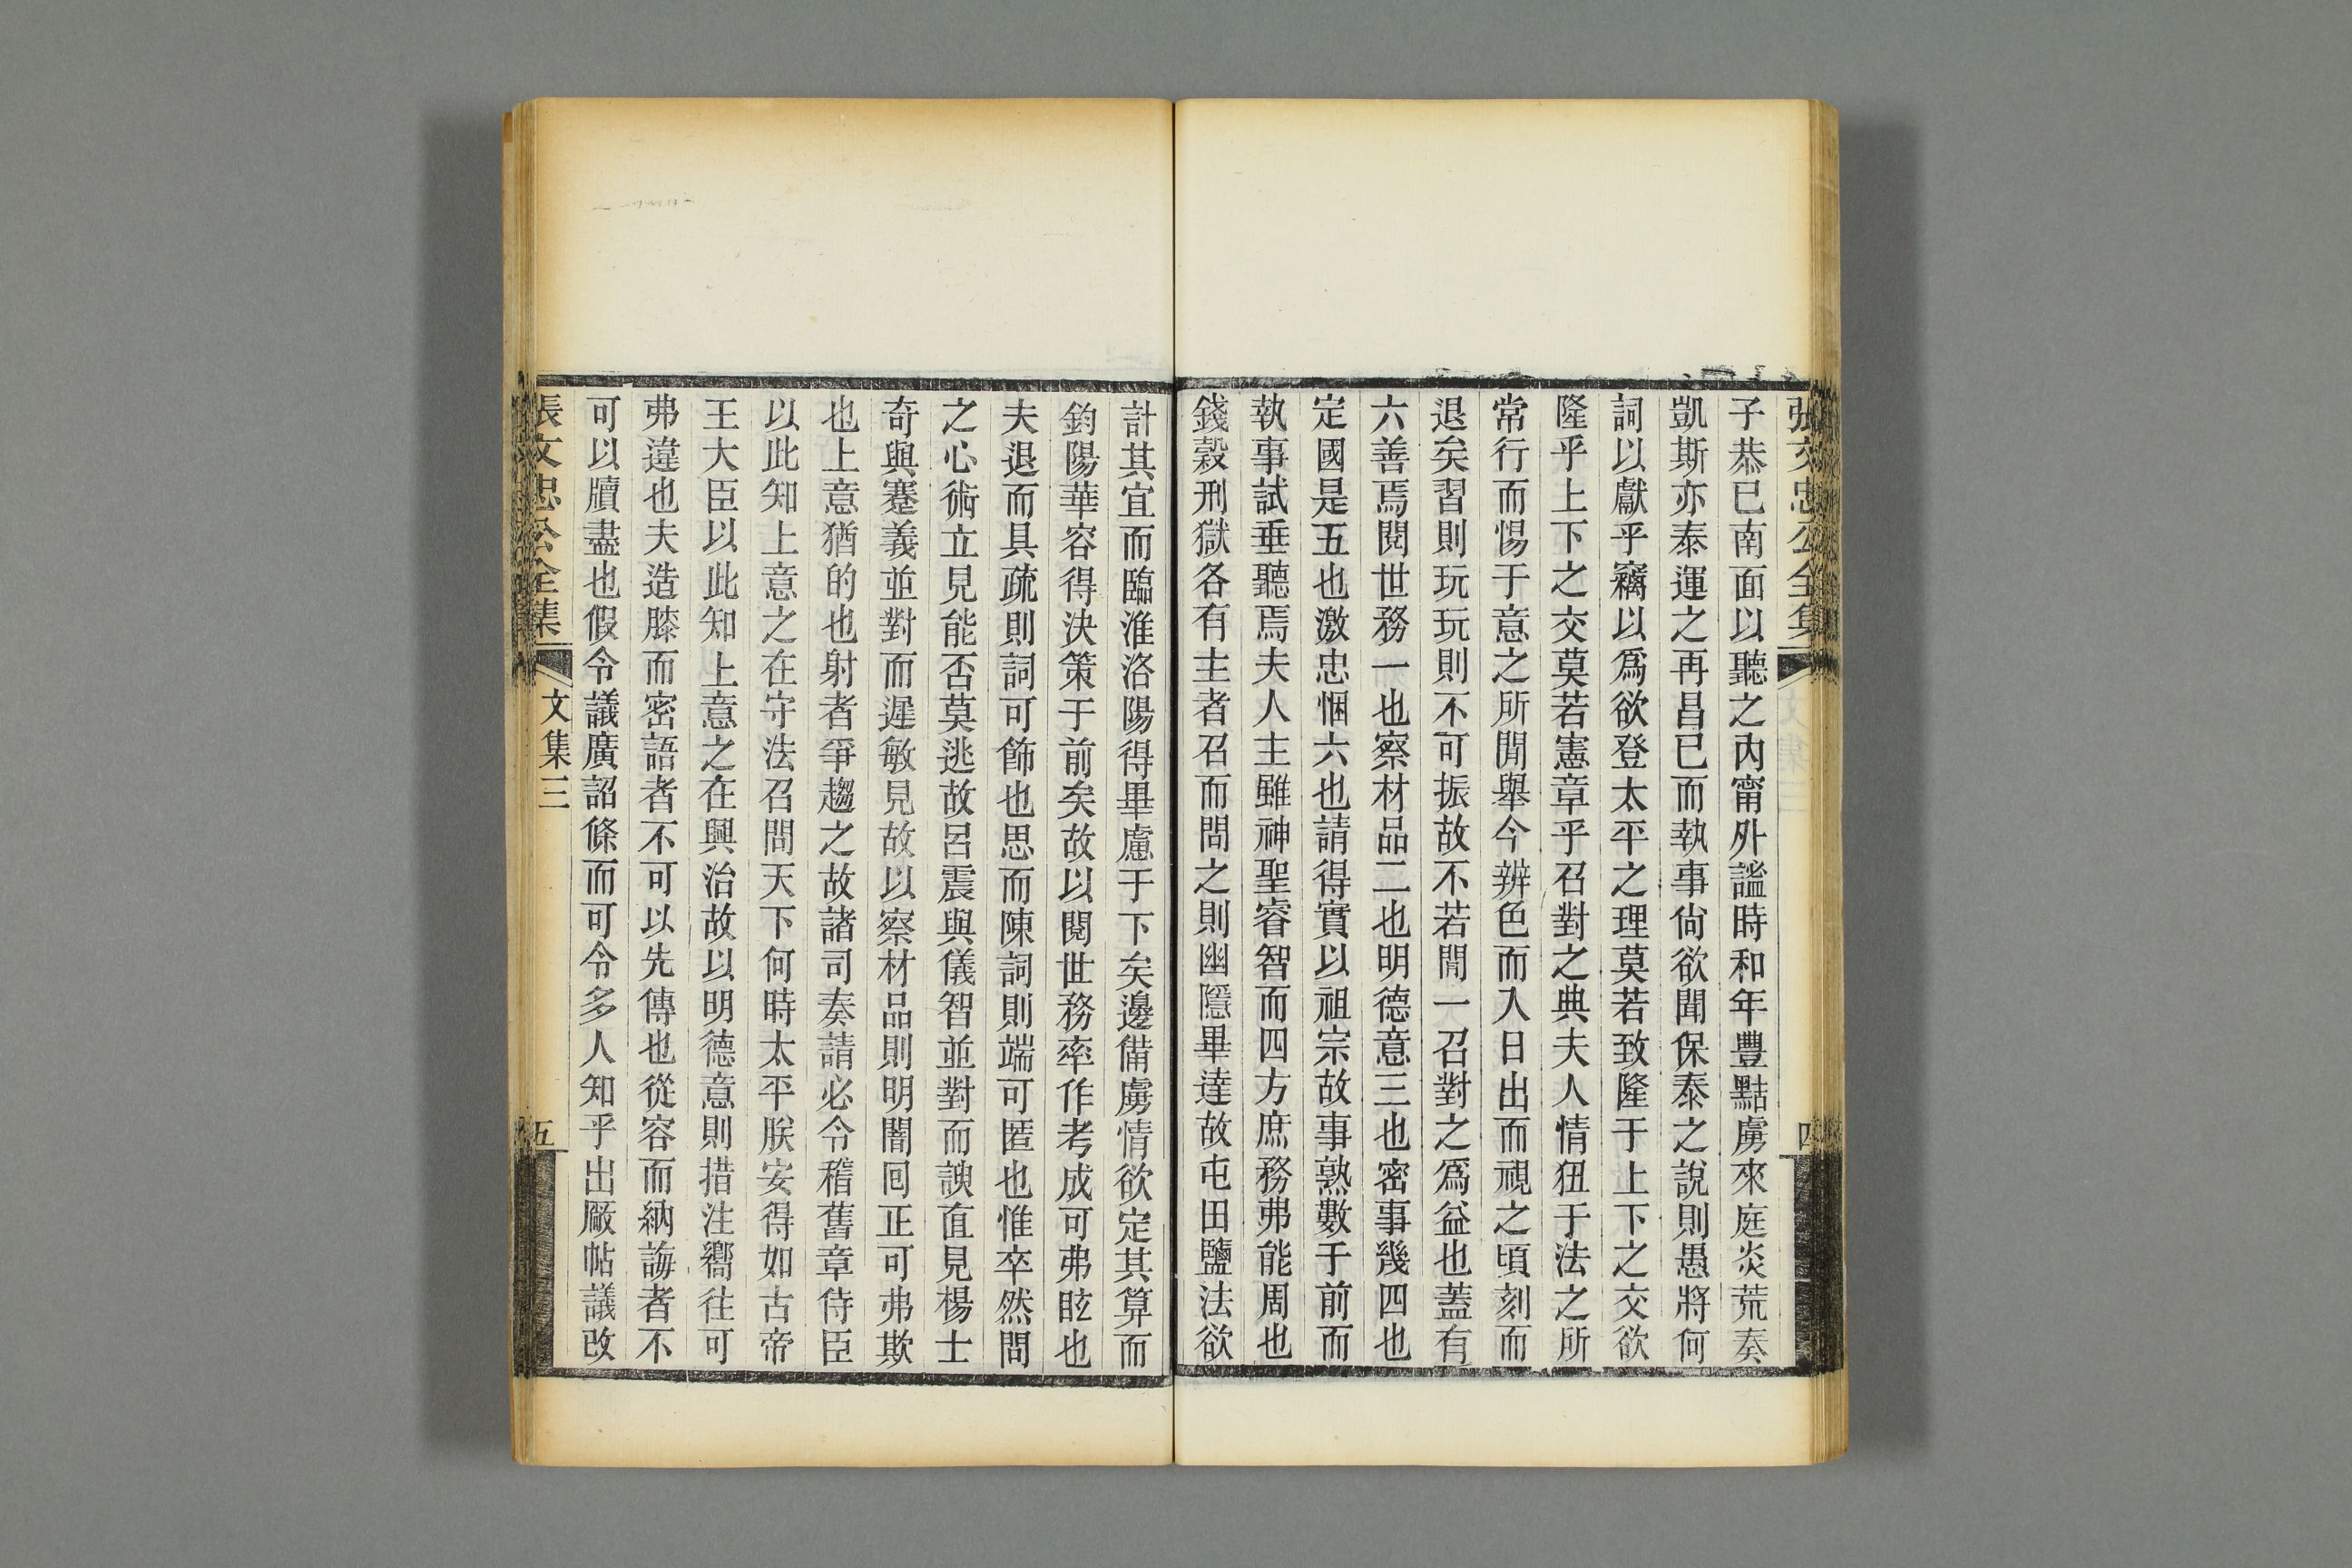 張文忠公全集
四
子恭已南面以聽之內甯外謐時和年豐黠虜來庭災荒奏
凱斯亦泰運之再昌已而執事尙欲聞保泰之說則愚將何
詞以獻乎竊以爲欲登太平之理莫若致隆于上下之交欲
隆乎上下之交莫若憲章乎召對之典夫人情狃于法之所
常行而惕于意之所閒舉今辨色而入日出而視之頃刻而
退矣習則玩玩則不可振故不若閒一召對之爲益也蓋有
六善焉閱世務一也察材品二也明德意三也密事幾四也
定國是五也激忠悃六也請得實以祖宗故事熟數于前而
執事試垂聽焉夫人主雖神聖睿智而四方庶務弗能周也
錢穀刑獄各有主者召而問之則幽隱畢達故屯田鹽法欲
計其宜而臨淮洛陽得畢慮于下矣邊備虜情欲定其算而
鈞陽華容得決策于前矣故以閱世務率作考成可弗眩也
夫退而具疏則詞可飾也思而陳詞則端可匿也惟卒然問
之心術立見能否莫逃故呂震與儀智並對而諛直見楊士
奇與蹇義並對而遲敏見故以察材品則明闇回正可弗欺
也上意猶的也射者爭趨之故諸司奏請必令稽舊章侍臣
以此知上意之在守法召問天下何時太平朕安得如古帝
王大臣以此知上意之在興治故以明德意則措注嚮往可
弗違也夫造膝而密語者不可以先傳也從容而納誨者不
可以牘盡也假令議廣詔條而可令多人知乎出厰帖議改
張文忠公全集
文集三
五